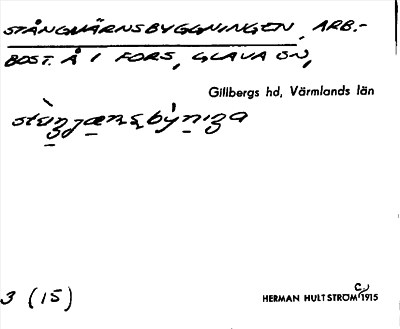 STÅNGJÄRNSBYGGNINGEN, ARB.-
BOST. Å I FORS, GLAVA SN,
Gillbergs hd, Värmlands län
3 (15)
HERMAN HULTSTRÖM 1915